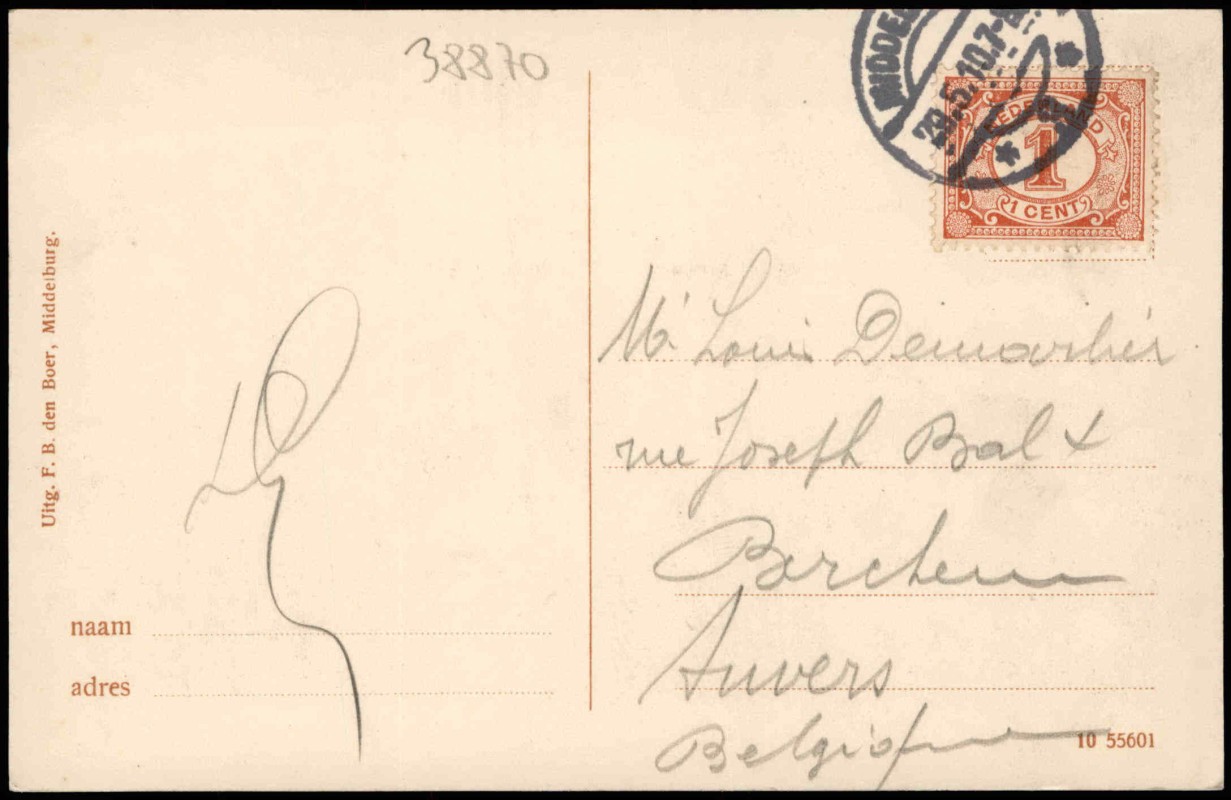 38870
MIDDE
29.5.10.7-8
NEDERLAND
1
1 CENT
Uitg. F. B. den Boer, Middelburg.
Mr Louis
rue Joseph Bal
Berchem
Anvers
Belgique
naam
adres
10 55601